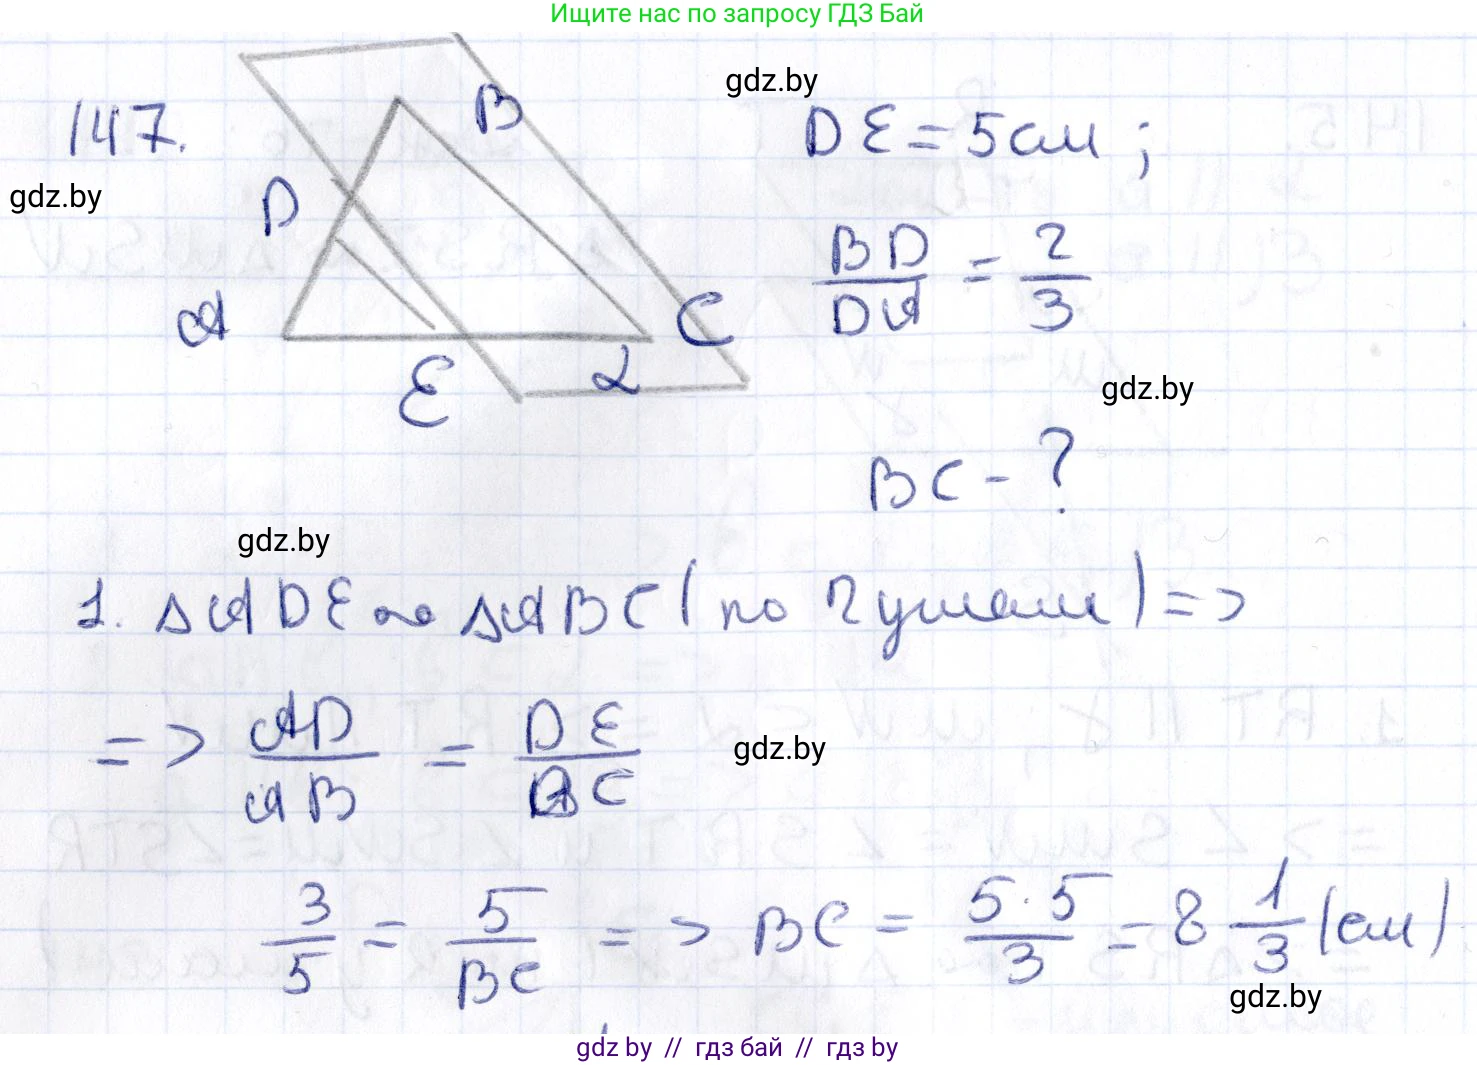 Ищите нас по запросу ГДЗ Бай
147.
gdz.by
B
D
A
C
E
α
gdz.by
DE = 5 см ;
BD/DA = 2/3
gdz.by
BC - ?
gdz.by
1. ΔADE ∾ ΔABC ( по 2 углам ) =>
=> AD/AB = DE/BC
gdz.by
3/5 = 5/BC => BC = 5·5/3 = 8 1/3 (см)
gdz.by
gdz by // гдз бай // гдз by